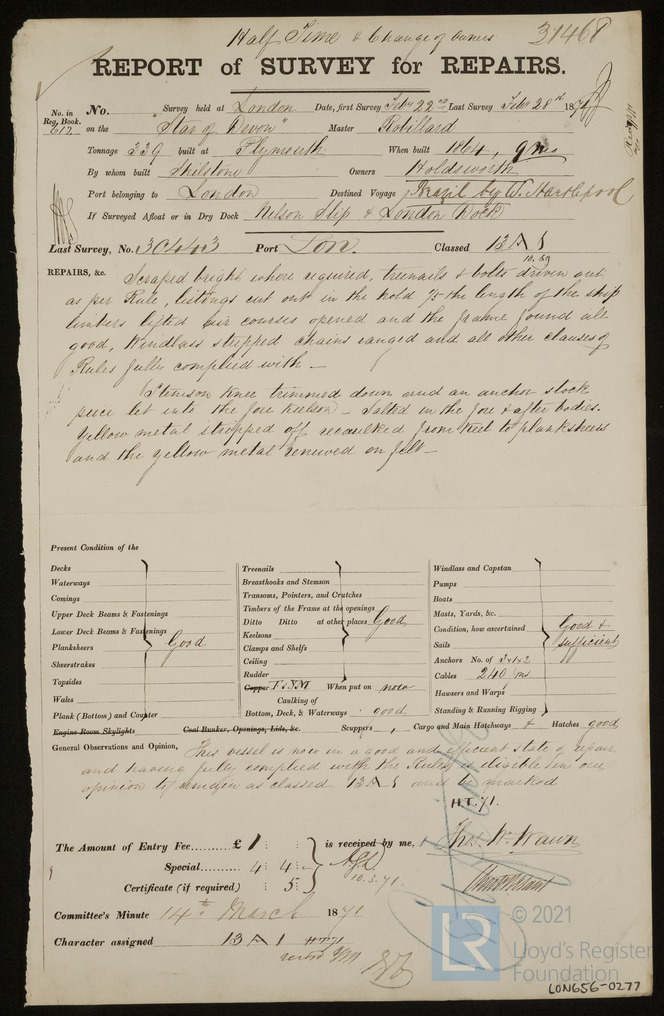 Half Time & Change of Owners 31468
REPORT of SURVEY for REPAIRS.
No. in Reg. Book. 612
No. Survey held at London Date, first Survey Feby 22nd Last Survey Feby 28th 1871
on the "Star of Devon" Master Robillard
Tonnage 339 built at Plymouth When built 1864,
By whom built Shilstone Owners Holdsworth
Port belonging to London Destined Voyage Brazil by W. Hartlepool
If Surveyed Afloat or in Dry Dock Nelson Slip & London Dock
Last Survey, No. 30443 Port Lon. Classed 13 A 1
10.69
REPAIRS, &c. Scraped bright where required, treenails & bolts driven out
as per Rule, listings cut out in the hold 3/5 the length of the ship
limbers lifted air courses opened and the frame found all
good, Windlass stripped chains ranged and all other clauses of
Rules fully complied with —
Stemson Knee trimmed down and an anchor stock
piece let into the fore keelson — Salted in the fore & after bodies.
Yellow metal stripped off recaulked from keel to planksheers
and the yellow metal renewed on felt —
Present Condition of the
Decks
Waterways
Comings
Upper Deck Beams & Fastenings
Lower Deck Beams & Fastenings
Planksheers Good
Sheerstrakes
Topsides
Wales
Plank (Bottom) and Counter
Engine Room Skylights Coal Bunker, Openings, Lids, &c.
Treenails
Breasthooks and Stemson
Transoms, Pointers, and Crutches
Timbers of the Frame at the openings
Ditto Ditto at other places Good
Keelsons
Clamps and Shelfs
Ceiling
Rudder
Copper F&YM When put on now
Caulking of
Bottom, Deck, & Waterways good
Windlass and Capstan
Pumps
Boats
Masts, Yards, &c.
Condition, how ascertained Good & sufficient
Sails
Anchors No. of 3+1+2
Cables 240 fms
Hawsers and Warps
Standing & Running Rigging
Scuppers , Cargo and Main Hatchways & Hatches good
General Observations and Opinion, This vessel is now in a good and efficient state of repair
and having fully complied with the Rules is eligible in our
opinion to remain as classed 13 A 1 and be marked
H.T. 71.
The Amount of Entry Fee £ 1 : : is received by me,
Special 4 : 4 :
10.3.71.
Certificate (if required) : 5 :
Thos. W. Wawn
Committee's Minute 14th March 1871
Character assigned 13 A 1 HT71
© 2021
LR
Lloyd's Register
Foundation
LON656-0277